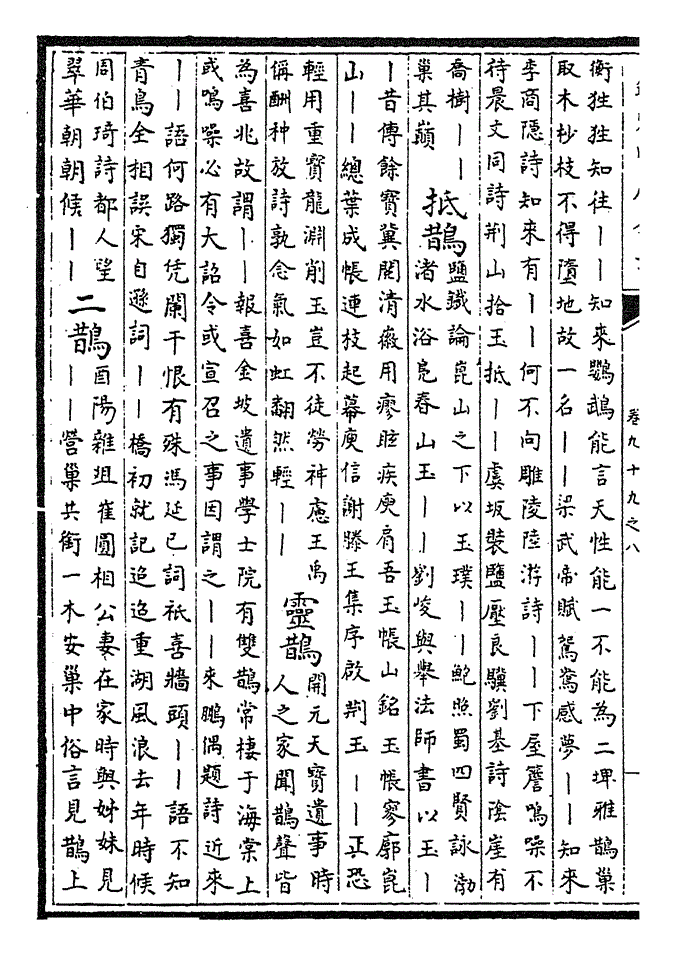 卷九十九之八
一
衡狌狌知往丨丨知來鸚鵡能言天性能一不能為二埤雅鵲巢
取木杪枝不得墮地故一名丨丨梁武帝賦駕鴦感夢丨丨知來
李商隱詩知來有丨丨何不向雕陵陸游詩丨丨下屋簷鳴噪不
待晨文同詩荆山拾玉抵丨丨虞坂裝鹽壓良驥劉基詩陰崖有
喬樹丨丨
巢其巔
抵鵲
鹽鐵論崑山之下以玉璞丨丨鮑照蜀四賢詠渤
渚水浴鳬舂山玉丨丨劉峻與舉法師書以玉丨
丨昔傅餘寶冀閲清徽用瘳眩疾庾肩吾玉帳山銘玉帳寥廓崑
山丨丨總葉成帳連枝起幕庾信謝滕王集序啟荆玉丨丨正恐
輕用重寶龍淵削玉豈不徒勞神慮王禹
偁酬种放詩孰念氣如虹翻然輕丨丨
靈鵲
開元天寶遺事時
人之家聞鵲聲皆
為喜兆故謂丨丨報喜金坡遺事學士院有雙鵲常棲于海棠上
或鳴噪必有大詔令或宣召之事因謂之丨丨來鵬偶題詩近來
丨丨語何路獨凭闌干恨有殊馮延巳詞祇喜牆頭丨丨語不知
青鳥全相誤宋自遜詞丨丨橋初就記迢迢重湖風浪去年時候
周伯琦詩都人望
翠華朝朝候丨丨
二鵲
酉陽雜俎崔圓相公妻在家時與姊妹見
丨丨營巢共銜一木安巢中俗言見鵲上